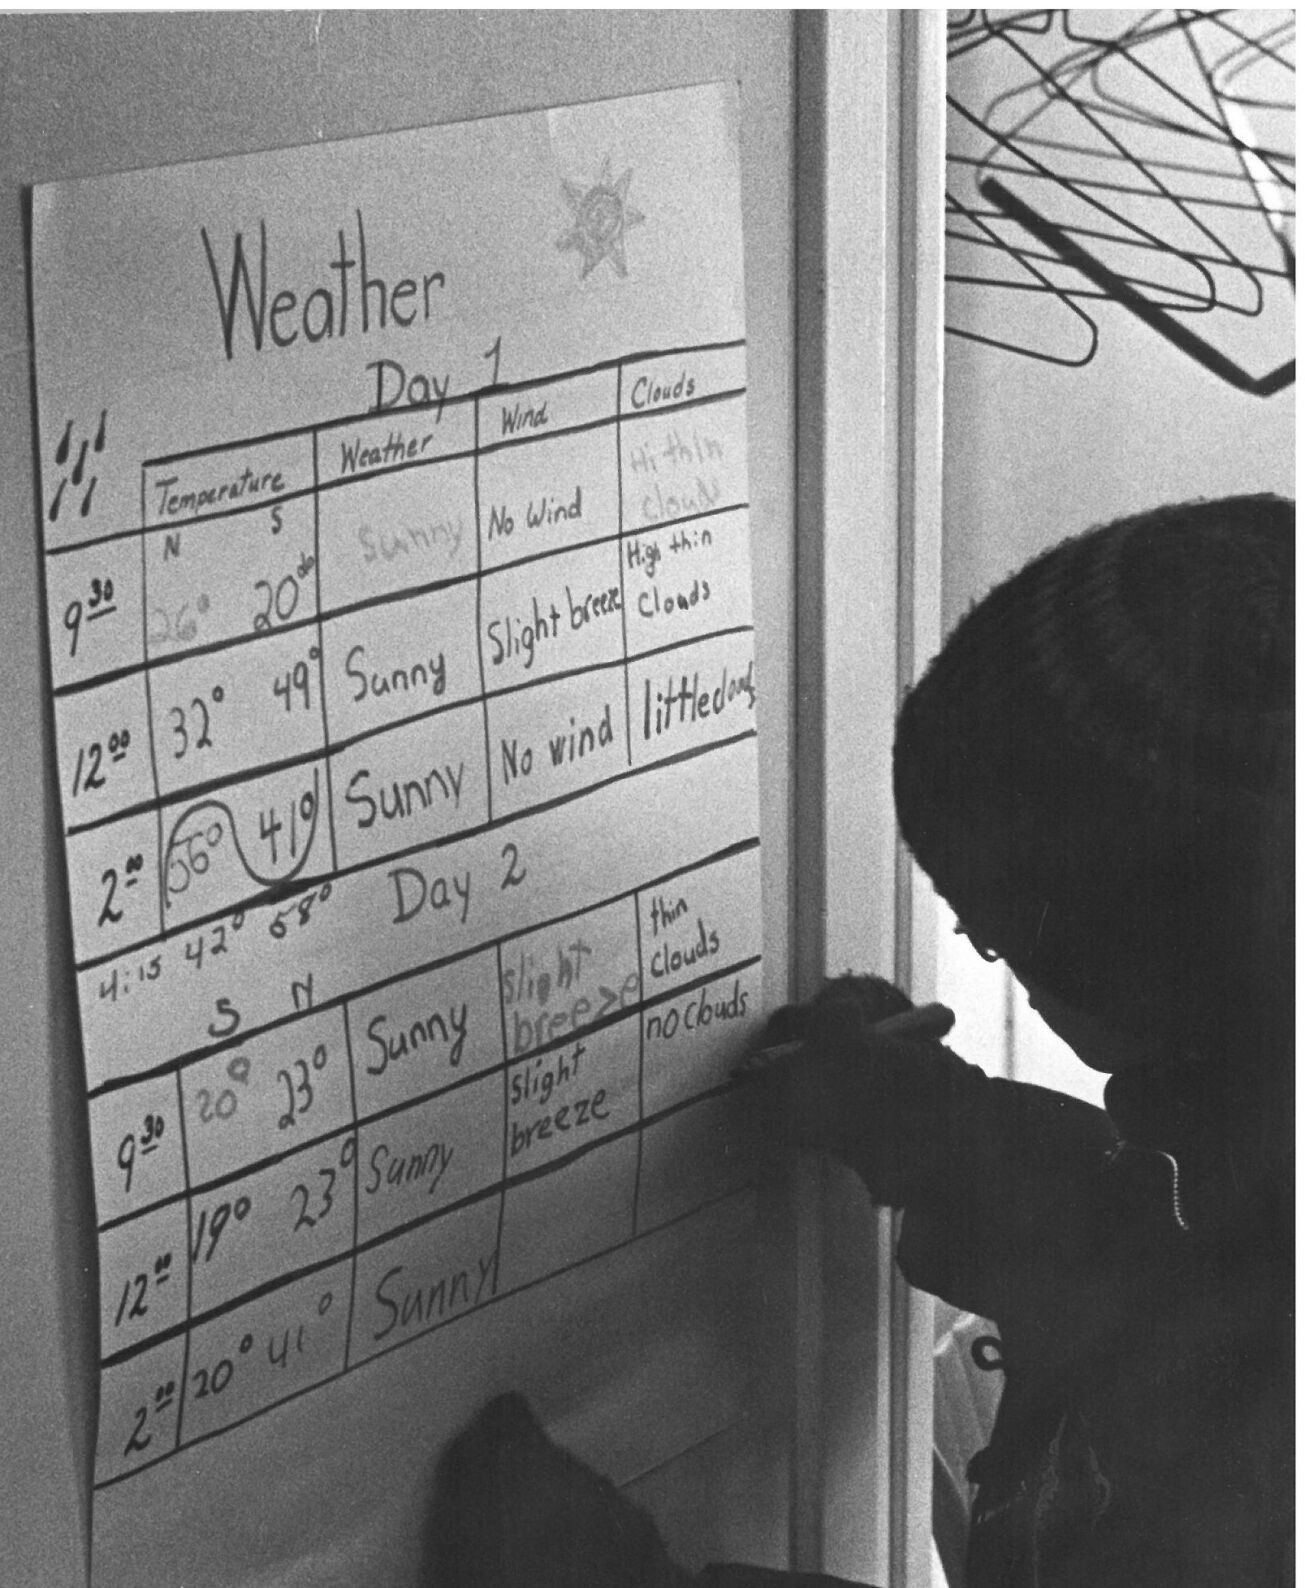 Weather
Day 1
Temperature Weather Wind Clouds
N S
9 30 26° 20° Sunny No Wind Hi thin
clouds
12 00 32° 49° Sunny Slight breeze High thin
Clouds
2 00 56° 41° Sunny No wind little clouds
4:15 42° 58°
Day 2
S N
9 30 20° 23° Sunny slight
breeze thin
clouds
12 00 19° 23° Sunny slight
breeze no clouds
2 00 20° 41° Sunny